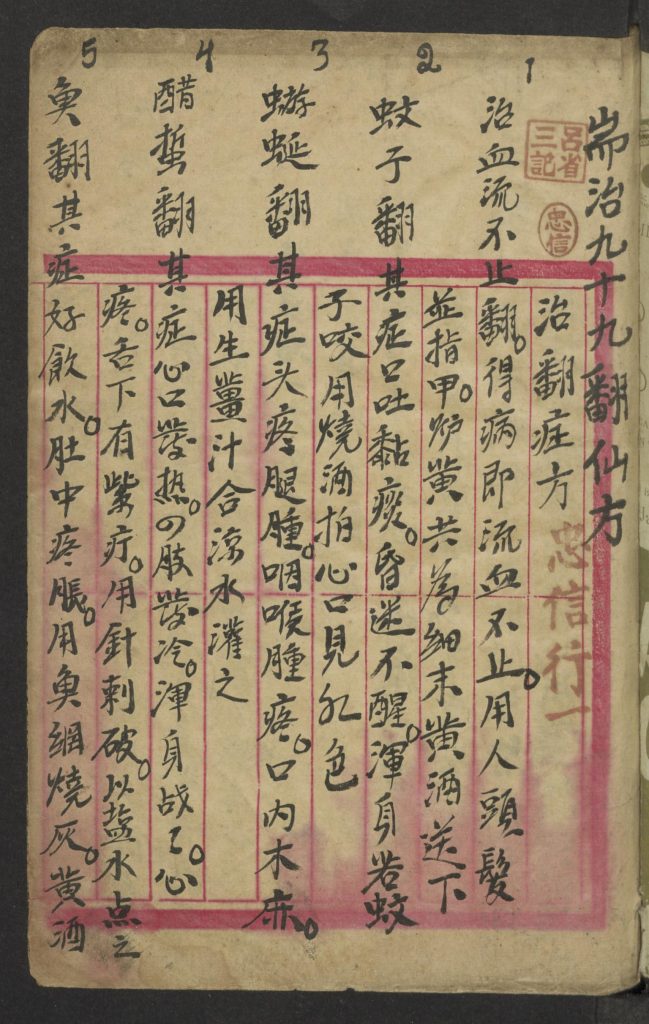 耑治九十九翻仙方
呂省
三記
忠信
治翻症方
忠信行一
1
治血流不止翻。得病即流血不止。用人頭髮
並指甲。炉黄共為細末黄酒送下
2
蚊子翻其症口吐黏痰。昏迷不醒。渾身若蚊
子咬用燒酒拍心口見红色
3
蝣蜒翻其症头疼腿腫。咽喉腫疼。口内木麻。
用生薑汁合涼水灌之
4
醋蜇翻其症心口發热。四肢發冷。渾身战。心
疼。舌下有紫疔。用針刺破。以盐水点之
5
魚翻其症好飲水。肚中疼脹。用魚網燒灰。黄酒